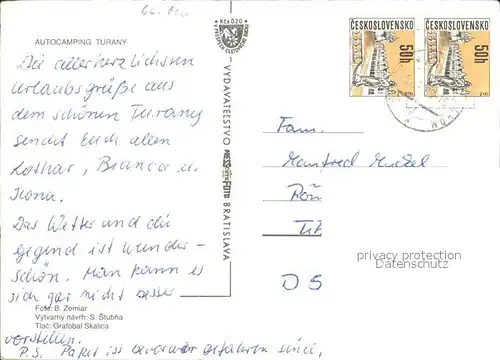 AUTOCAMPING TURANY
Die allerherzlichsten
Urlaubsgrüße aus
dem schönen Turany
sendet Euch allen
Lothar, Bianca u.
Ilona.
Das Wetter und die
Gegend ist wunder-
schön. Man kann es
sich gar nicht besser
vorstellen.
P.S. Paket ist bevor wir gefahren sind,
Foto: B. Zemiar
Výtvarný návrh: S. Štubňa
Tlač: Grafobal Skalica
Kčs 0,20
VYDAVATEĽSTVO
BRATISLAVA
ČESKOSLOVENSKO
50h
ČESKOSLOVENSKO
50h
Fam.
Manfred
D S
privacy protection
Datenschutz